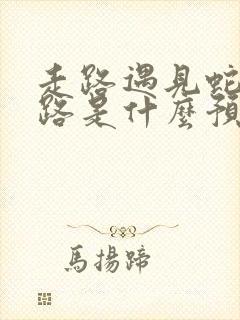 走路遇見蛇
路是什麼預
馬揚蹄